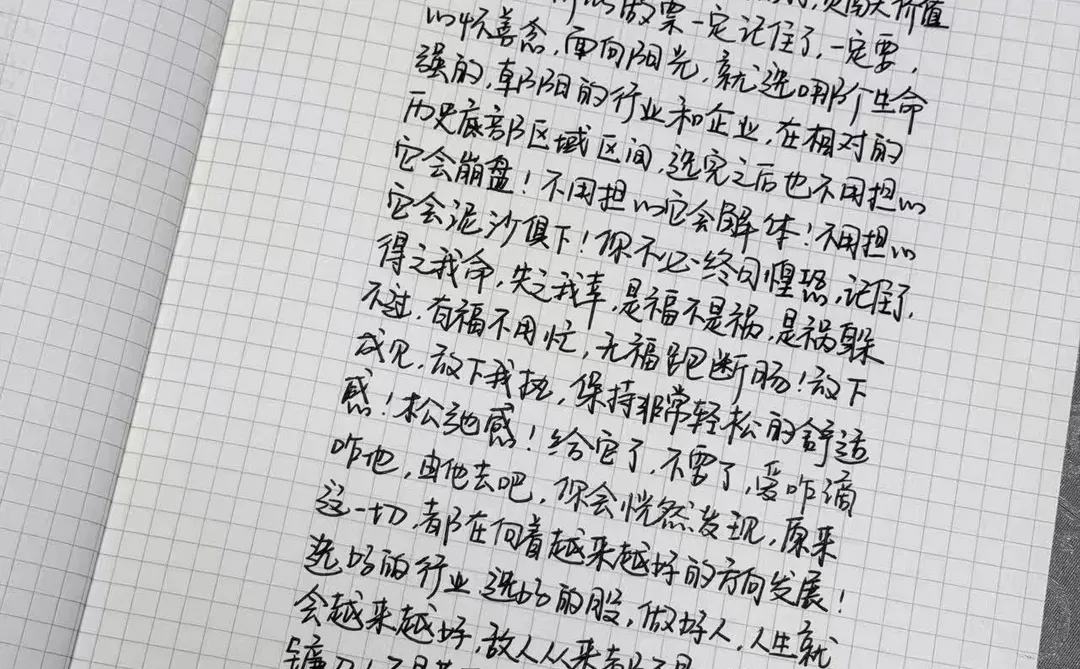 做票一定记住了，一定要，
心怀善念，面向阳光，就选哪个生命
强的，朝阳的行业和企业，在相对的
历史底部区域区间，选完之后也不用担心
它会崩盘！不用担心它会解体！不用担心
它会泥沙俱下！你不必终日惶恐，记住了，
得之我命，失之我幸，是福不是祸，是祸躲
不过，有福不用忙，无福跑断肠！放下
成见，放下我执，保持非常轻松的舒适
感！松弛感！给它了，不要了，爱咋滴
咋地，由他去吧，你会恍然发现，原来
这一切，都在向着越来越好的方向发展！
选好的行业，选好的股，做好人，人生就
会越来越好，敌人从来都不是